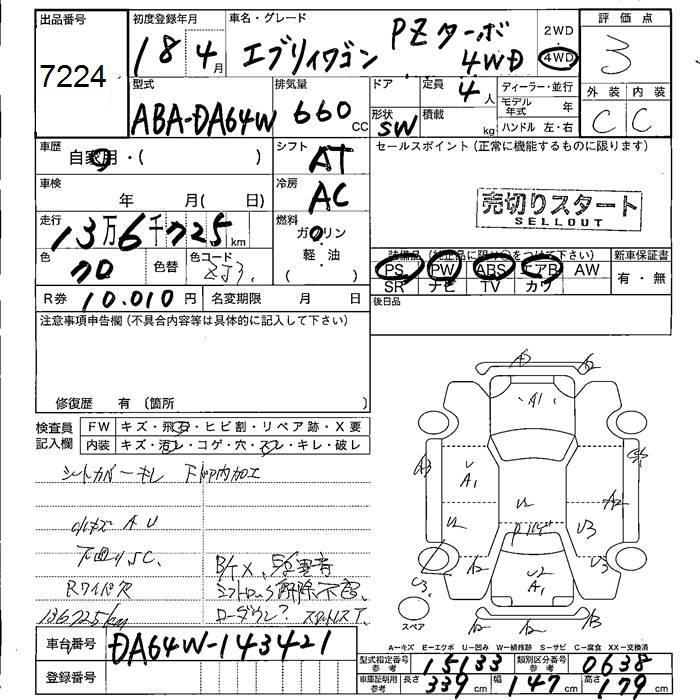 出品番号
7224
初度登録年月
18 4月
車名・グレード
エブリィワゴン PZターボ 4WD
2WD
4WD
評価点
3
外装 内装
C C
型式
ABA-DA64W
排気量
660 cc
ドア
形状
SW
定員
4人
積載
kg
ディーラー・並行
モデル年式 年
ハンドル 左・右
車歴
自家用・( )
シフト
AT
セールスポイント(正常に機能するものに限ります)
車検
年 月( 日)
冷房
AC
売切りスタート
SELLOUT
走行
13万6千725km
燃料
ガソリン
軽・油
( )
色
クロ
色替
色コード
ZJ3
装備品(純正品に限り○をつけて下さい)
PS PW ABS エアB AW
SR ナビ TV カワ
新車保証書
有・無
R券 10.010円
名変期限 月 日
後日品
注意事項申告欄(不具合内容等は具体的に記入して下さい)
修復歴 有(箇所 )
検査員記入欄
FW キズ・飛石・ヒビ割・リペア跡・X要
内装 キズ・汚レ・コゲ・穴・スレ・キレ・破レ
シートカバーキレ
小キズ A U
下回りSC.
Rワイパ欠
136725km
車台番号 DA64W-143421
登録番号
A1
A2
U
A1
U2
U2
A2
U3
U3
A2
A2
U2
A1
スペア
A2
A2
A-キズ E-エクボ U-凹み W-補修跡 S-サビ C-腐食 XX-交換済
型式指定番号 参考 15133
類別区分番号 参考 0638
車庫証明用 参考 長さ 339cm 幅 147cm 高さ 179cm